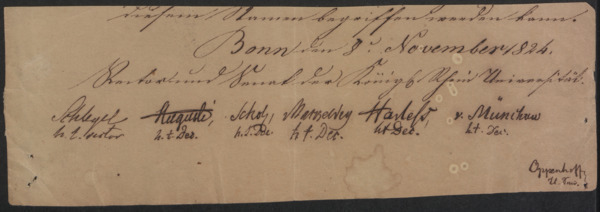 diesem Namen begriffen werden kann.
Bonn den 8t November 1824.
Rector und Senat der Königl. Rhein Universität.
Schlegel Augusti, Scholz, Harless, v. Münchow
h. t. Rector h. t. Dec. h. t. Dec. h. t. Dec. h t Dec. h. t. Dec.
Oppenhoff
U. Secr.